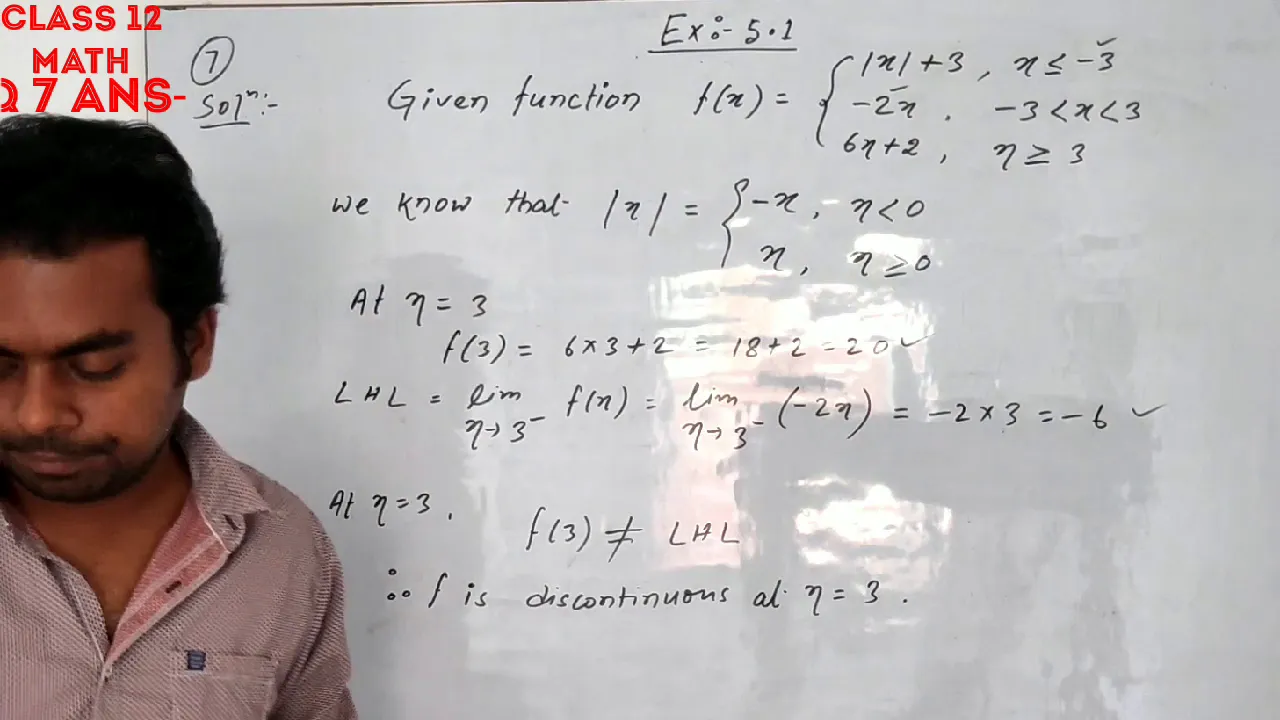 CLASS 12
MATH
Q 7 ANS-
Ex:- 5.1
7
Solⁿ:-
Given function f(x) = { |x| + 3 , x ≤ -3
-2x , -3 < x < 3
6x + 2 , x ≥ 3
we know that |x| = { -x , x < 0
x , x ≥ 0
At x = 3
f(3) = 6 × 3 + 2 = 18 + 2 = 20 ✓
LHL = lim x→3⁻ f(x) = lim x→3⁻ (-2x) = -2 × 3 = -6 ✓
At x = 3 .
f(3) ≠ LHL
∴ f is discontinuous at x = 3 .